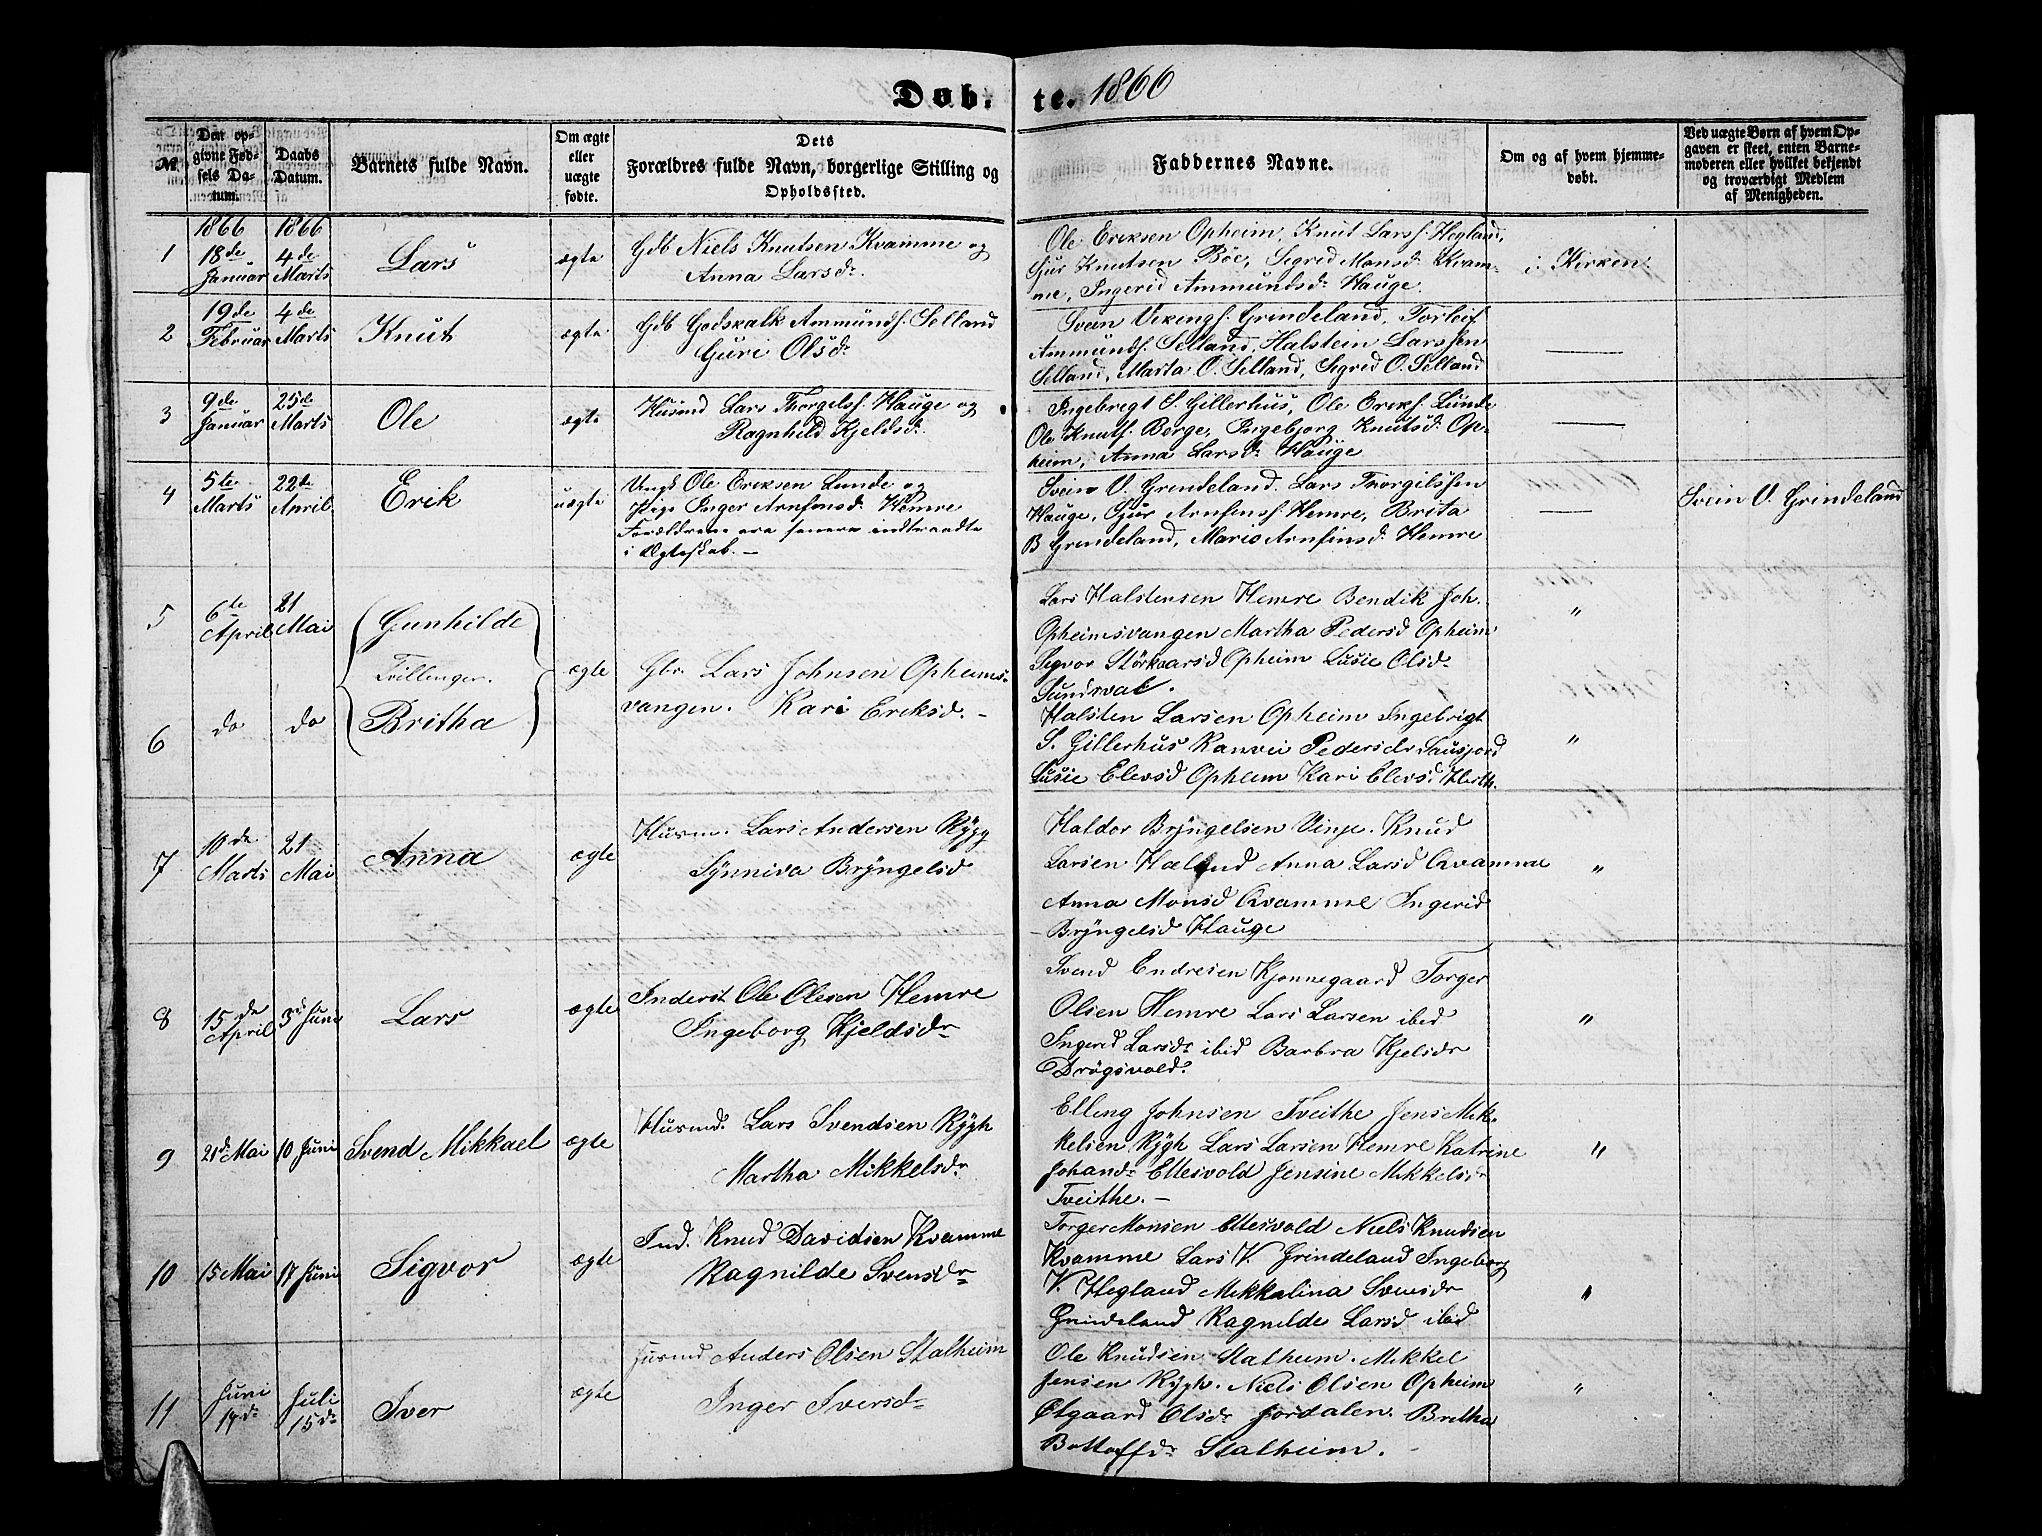 Døbte. 1866
№
Den opgivne Fødsels Datum.
Daabs Datum.
Barnets fulde Navn.
Om ægte eller uægte fødte.
Dets Forældres fulde Navn, borgerlige Stilling og Opholdssted.
Faddernes Navne.
Om og af hvem hjemmedøbt.
Ved uægte Børn af hvem Opgaven er skeet, enten Barnemoderen eller hvilket bekjendt og troværdigt Medlem af Menigheden.
1866 1866
1
18de Januar
4de Marts
Lars
ægte
Gdb Niels Knutsen Kvamme og
Anna Larsdr
Ole Eriksen Opheim, Knut Larss. Hegland,
Sjur Knutsen Böe, Sigrid Monsd. Kvam-
me, Ingerid Ammundsdr Hauge.
i Kirken
2
19de Februar
4de Marts
Knut
ægte
Gdb Godskalk Ammunds. Selland
Guri Olsdr
Svein Vikings. Grindeland, Torleif
Ammunds. Selland, Halstein Larssen
Selland, Marta O. Selland, Sigrid O. Selland
3
9de Januar
25de Marts
Ole
ægte
Husmd Lars Thorgilss. Hauge og
Ragnhild Kjeldsd.
Ingebregt S. Gillerhus, Ole Eriks. Lunde
Ole Knuts. Berge, Ingebjorg Knutsd. Op-
heim, Anna Larsdr Hauge
4
5te Marts
22de April
Erik
uægte
Ungk Ole Eriksen Lunde og
Pige Inger Arnfinsd. Hemre
Forældrene ere senere indtraadte
i Ægteskab. —
Svein V. Grindeland. Lars Thorgilssen
Hauge, Sjur Arnfins. Hemre, Brita
B Grindeland, Mario Arnfinsd. Hemre
Svein V. Grindeland
5
6te April
21 Mai
Gunhilde
Tvillinger.
ægte
Gbr. Lars Johnsen Opheims-
vangen. Kari Eriksd. —
Lars Halstensen Hemre Bendik Joh.
Opheimsvangen Martha Pedersd Opheim
Sigvor Störkaarsd Opheim Lusie Olsdr
Sundsval.
"
6
do
do
Britha
Halsten Larsen Opheim Ingebrigt
S. Gillerhus Ranvei Pedersdr Sausjord
Lusie Elevsd Opheim Kari Elevsd
"
7
10de Marts
21 Mai
Anna
ægte
Husm. Lars Andersen Rygg
Synniva Bryngelsd
Haldor Bryngelsen Vinje. Knud
Larsen Hæland Anna Larsd Qvamme
Anna Monsd Qvamme Ingerid
Bryngelsd Hauge
"
8
15de April
3d Juni
Lars
ægte
Inderst Ole Olesen Hemre
Ingeborg Kjeldsdr
Svend Endresen Kjonnegaard Torger
Olsen Hemre Lars Larsen ibid
Ingerid Larsdr ibid Barbra Kjelsdr
Drögsvold.
"
9
21d Mai
10 Juni
Svend Mikkael
ægte
Husmd. Lars Svendsen Rygh
Martha Mikkelsdr
Elling Johnsen Tveithe Jens Mik-
kelsen Rygh Lars Larsen Hemre Katrine
Johandr Ettesvold Jensine Mikkelsdr
Tveithe. —
"
10
15 Mai
17 Juni
Sigvor
ægte
Ind. Knud Davidsen Kvamme
Ragnilde Svensdr
Torger Monsen Ettesvold Niels Knudsen
Kvamme Lars V. Grindeland Ingeborg
V. Hegland Mikkalina Svensdr
Grindeland Ragnilde Larsd ibid
"
11
Juni 14de
Juli 15de
Iver
ægte
Husmd Anders Olsen Stalheim
Inger Iversdr
Ole Knudsen Stalheim. Mikkel
Jensen Rygh. Niels Olsen Opheim
Olsdr Jordalen. Britha
Stalheim.
"